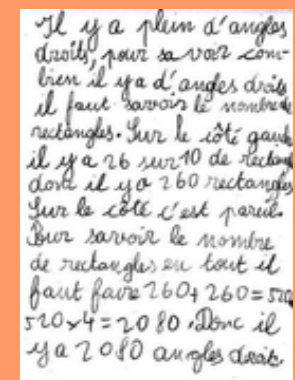 Il y a plein d'angles
droits, pour savoir com-
bien il y a d'angles droits
il faut savoir le nombre de
rectangles. Sur le côté gauche
il y a 26 sur 10 de rectangles
donc il y a 260 rectangles
Sur le côté c'est pareil.
Pour savoir le nombre
de rectangles en tout il
faut faire 260+260=520
520x4=2080. Donc il
y a 2080 angles droits